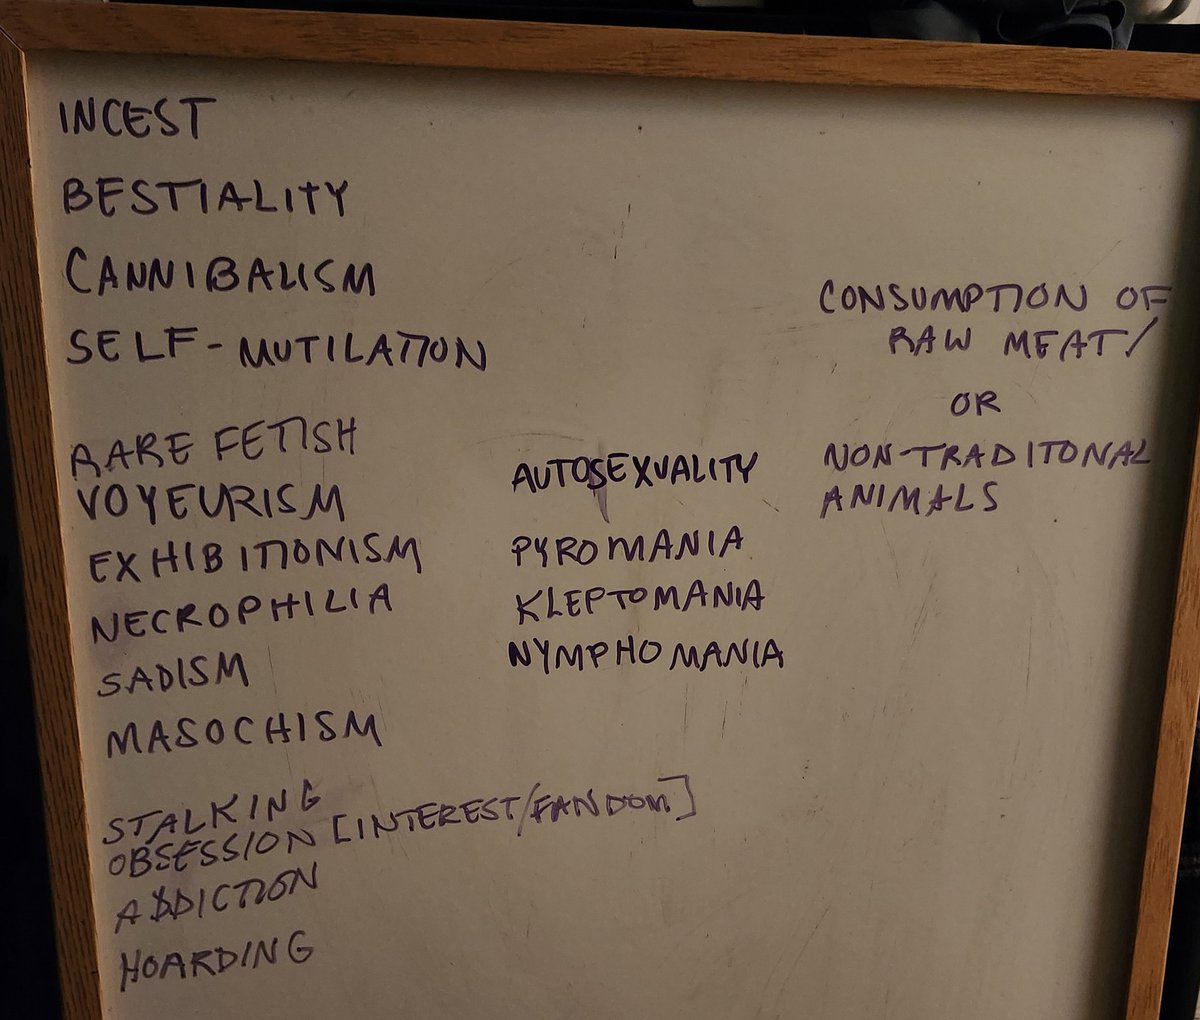 INCEST
BESTIALITY
CANNIBALISM
SELF-MUTILATION
RARE FETISH
VOYEURISM
EXHIBITIONISM
NECROPHILIA
SADISM
MASOCHISM
STALKING
OBSESSION [INTEREST/FANDOM]
ADDICTION
HOARDING
AUTOSEXUALITY
PYROMANIA
KLEPTOMANIA
NYMPHOMANIA
CONSUMPTION OF
RAW MEAT/
OR
NON-TRADITONAL
ANIMALS